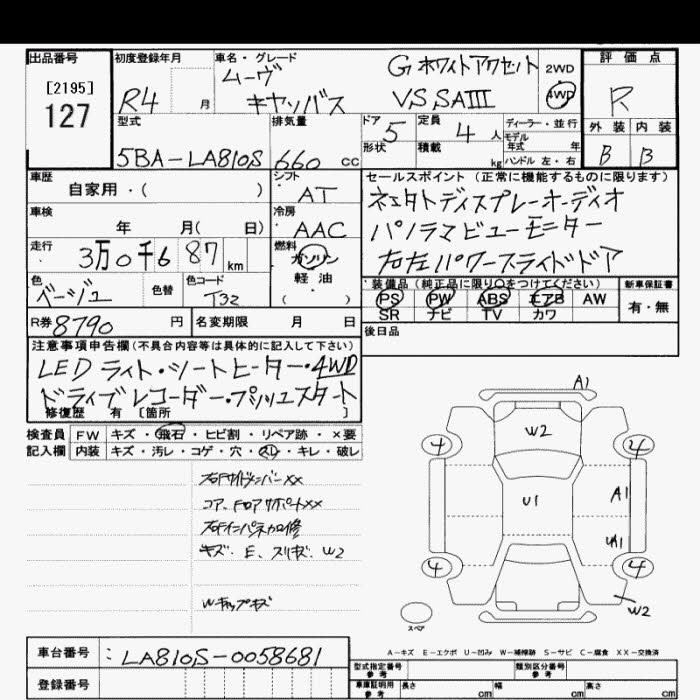 出品番号
[2195]
127
初度登録年月
R4 月
車名・グレード
ムーヴ
キャンバス
Gホワイトアクセント
VS SAIII
2WD
4WD
評価点
R
外装 内装
B B
型式
5BA-LA810S
排気量
660 cc
ドア 5
形状
定員 4 人
積載 kg
ディーラー・並行
モデル
年式 年
ハンドル 左・右
車歴
自家用・( )
シフト
AT
車検
年 月( 日)
冷房
AAC
走行
3万0千6 87 km
燃料
ガソリン
軽油
( )
色
ベージュ
色替
色コード
T32
R券 8790 円
名変期限 月 日
セールスポイント(正常に機能するものに限ります)
ディスプレーオーディオ
パノラマビューモニター
右左パワースライドドア
装備品(純正品に限り○をつけてください)
PS PW ABS エアB AW
SR ナビ TV カワ
新車保証書
有・無
後日品
注意事項申告欄(不具合内容等は具体的に記入して下さい)
LEDライト・シートヒーター・4WD
ドライブレコーダー・プッシュスタート
修復歴 有 [箇所 ]
検査員 FW キズ・飛石・ヒビ割・リペア跡・×要
記入欄 内装 キズ・汚レ・コゲ・穴・スレ・キレ・破レ
右Fサイドメンバーxx
コア、Fロアサポートxx
右Fインパネカロ修
キズ、E、スリキズ、W2
Wキャップキズ
A1
W2
4 4
U1
A1
UA1
4 4
W2
スペア
A-キズ E-エクボ U-凹み W-補修跡 S-サビ C-腐食 XX-交換済
車台番号 : LA810S-0058681
登録番号
型式指定番号
参考
類別区分番号
参考
車庫証明用
参考
長さ cm 幅 cm 高さ cm